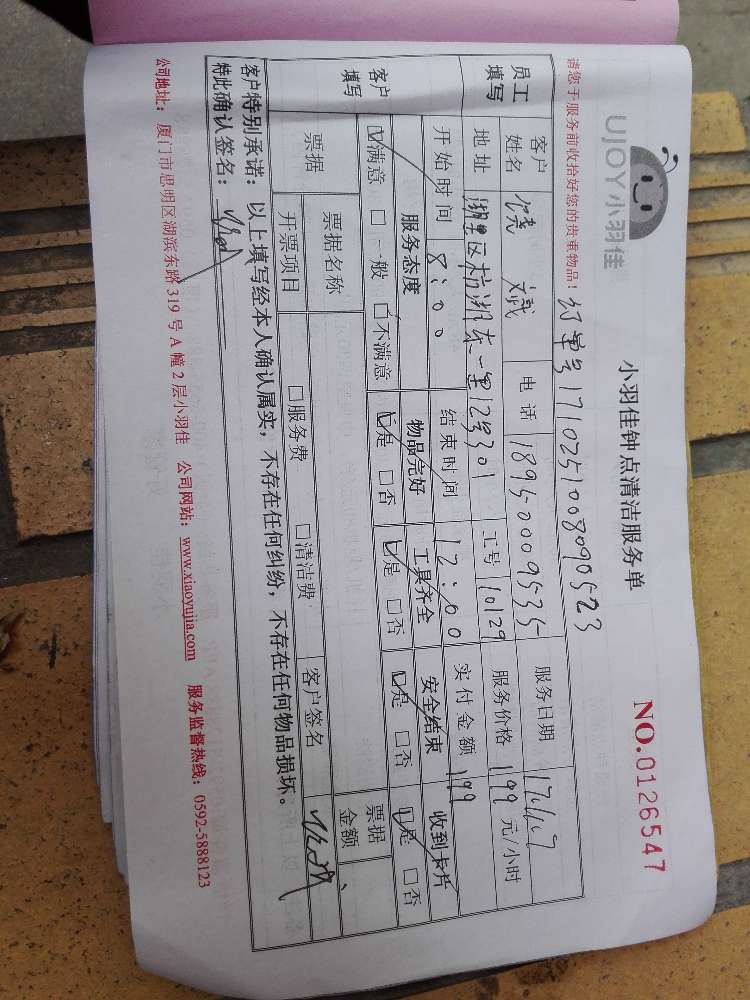 UJOY小羽佳
小羽佳钟点清洁服务单
NO.0126547
请您于服务前收拾好您的贵重物品！
订单号1710251008090523
员工填写 客户姓名 饶 电话 18950009535 服务日期 17.11.7
地址 湖里区枋湖东一里12号301 工号 10129 服务价格 199 元/小时
开始时间 8:00 结束时间 12:00 实付金额 199
客户填写 服务态度 物品完好 工具齐全 安全结束 收到卡片
☑满意 □一般 □不满意 ☑是 □否 ☑是 □否 ☑是 □否 ☑是 □否
票据 票据名称 票据金额
开票项目 □服务费 □清洁费 客户签名
客户特别承诺：以上填写经本人确认属实，不存在任何纠纷，不存在任何物品损坏。
特此确认签名：
公司地址：厦门市思明区湖滨东路319号A幢2层小羽佳 公司网站：www.xiaoyujia.com 服务监督热线：0592-5888123